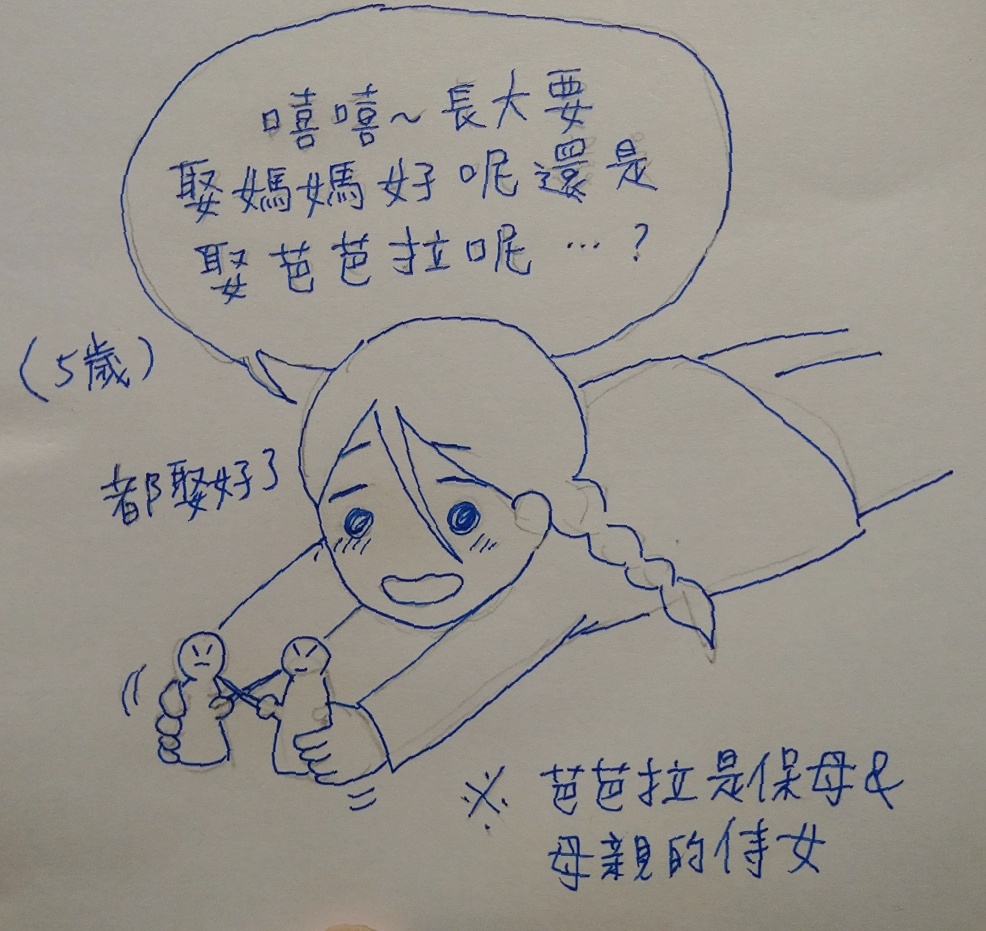 嘻嘻~長大要
娶媽媽好呢還是
娶芭芭拉呢…?
(5歲)
都娶好了
※芭芭拉是保母&
母親的侍女